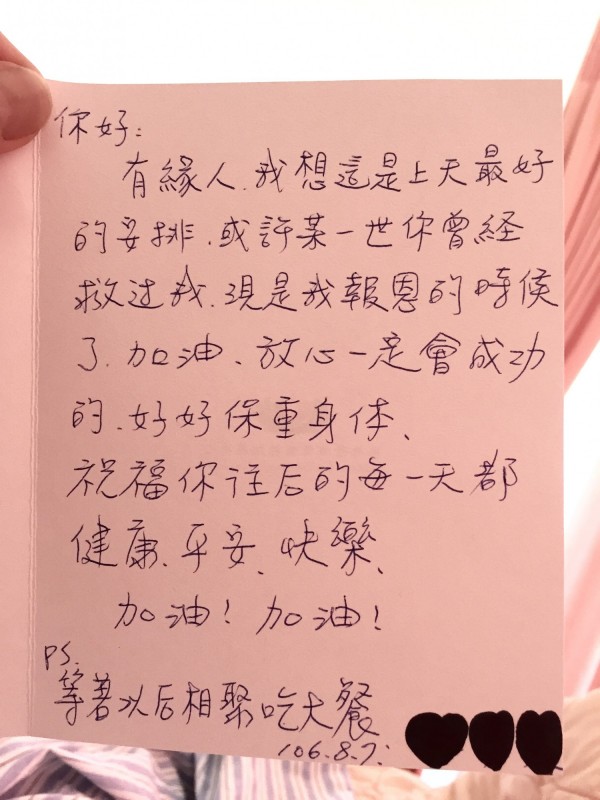 你好:
有緣人、我想這是上天最好
的安排、或許某一世你曾経
救过我、現是我報恩的時候
了、加油、放心一定會成功
的、好好保重身体、
祝福你往后的每一天都
健康、平安、快樂、
加油! 加油!
PS.
等著以后相聚吃大餐
106.8.7.